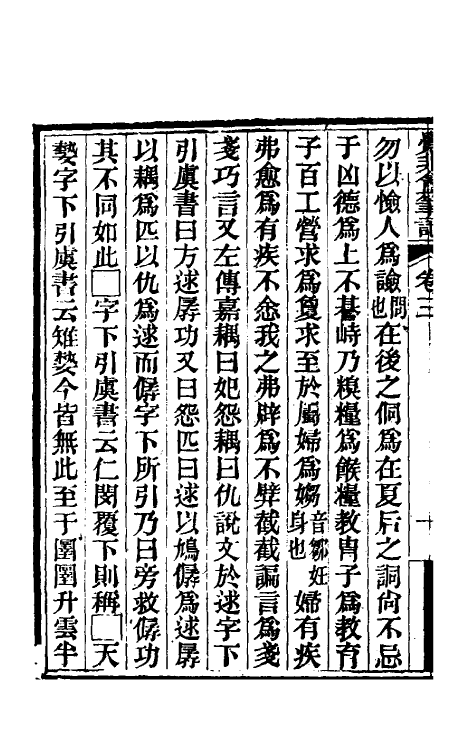 覺非盦筆記 卷三
勿以憸人爲譣問也在後之侗爲在夏后之詷尙不忌
于凶德爲上不朞峙乃糗糧爲餱糧敎冑子爲敎育
子百工營求爲敻求至於屬婦爲媰音鄒妊身也婦有疾
弗愈爲有疾不悆我之弗辟爲不擘截截諞言爲戔
戔巧言又左傳嘉耦曰妃怨耦曰仇說文於逑字下
引虞書曰方逑孱功又曰怨匹曰逑以鳩僝爲逑孱
以耦爲匹以仇爲逑而僝字下所引乃曰旁救僝功
其不同如此□字下引虞書云仁閔覆下則稱□天
㜘字下引虞書云雉㜘今皆無此至于圛圛升雲半